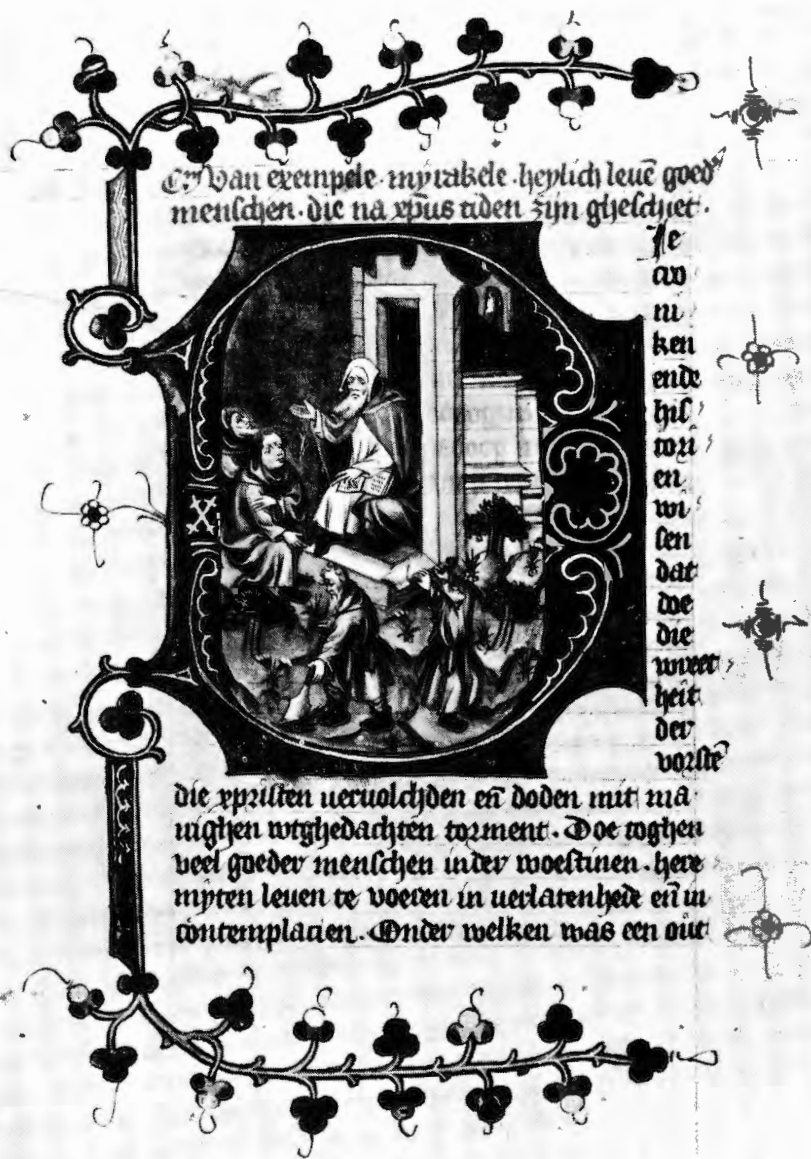 Van exempele · myrakele · heylich leuē goed'
menschen · die na xp̄us tiden zijn ghesciet ·
ie
cro
ni
ken
ende
his
tori
en
wi
sen
dat
doe
die
wreet
heit
der
vorstē
die xpristen veruolchden en̄ doden mit ma
nighen wtghedachten torment · Doe toghen
veel goeder menschen inder woestinen · here
myten leuen te voeren in verlatenhede en̄ in
contemplacien · Onder welken was een out